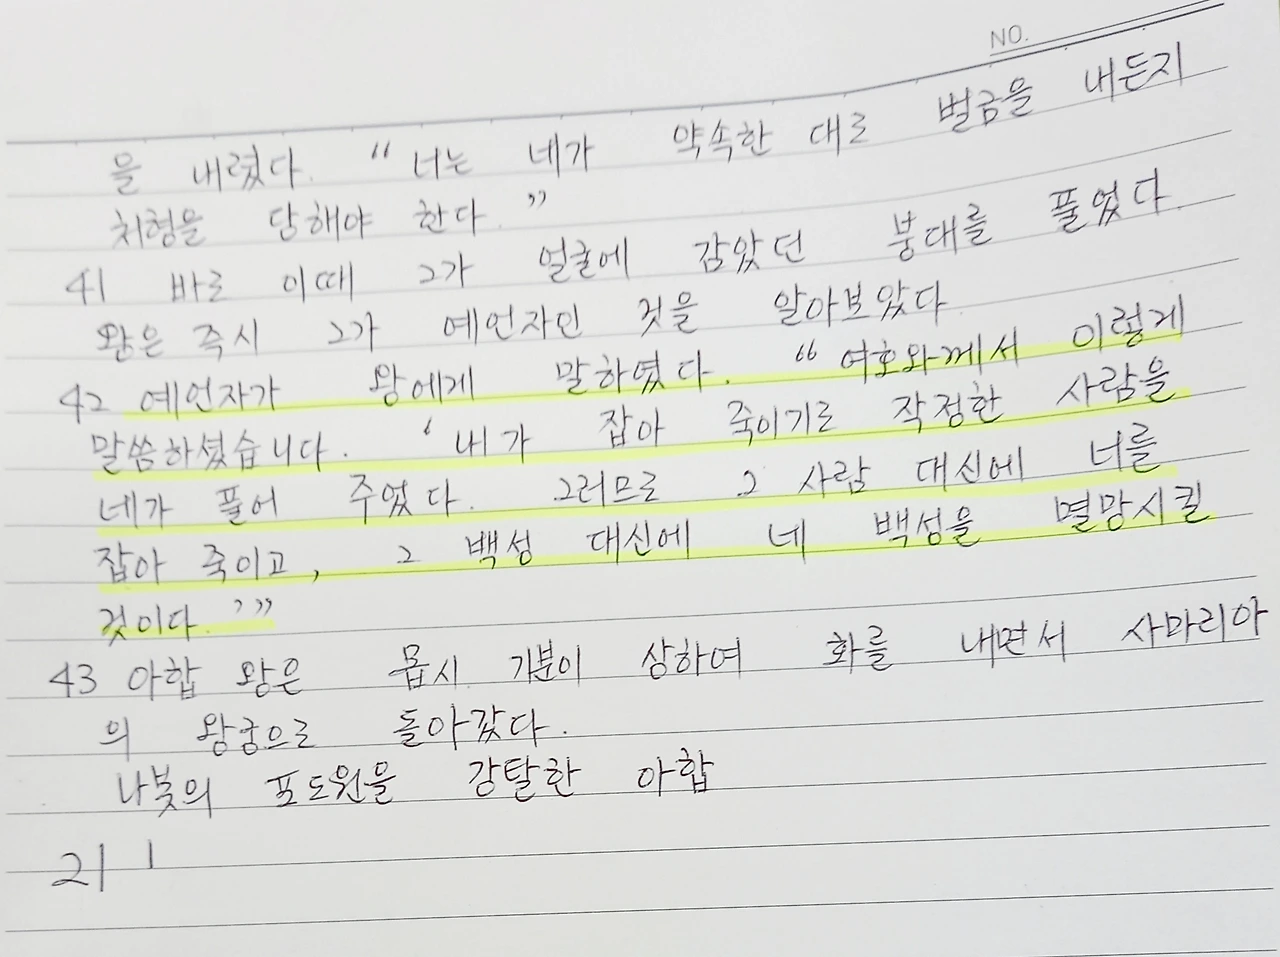 NO.
을 내렸다. “너는 네가 약속한 대로 벌금을 내든지
처형을 당해야 한다.”
41 바로 이때 그가 얼굴에 감았던 붕대를 풀었다.
왕은 즉시 그가 예언자인 것을 알아보았다.
42 예언자가 왕에게 말하였다. “여호와께서 이렇게
말씀하셨습니다. ‘내가 잡아 죽이기로 작정한 사람을
네가 풀어 주었다. 그러므로 그 사람 대신에 너를
잡아 죽이고, 그 백성 대신에 네 백성을 멸망시킬
것이다.’”
43 아합 왕은 몹시 기분이 상하여 화를 내면서 사마리아
의 왕궁으로 돌아갔다.
나봇의 포도원을 강탈한 아합
21 1